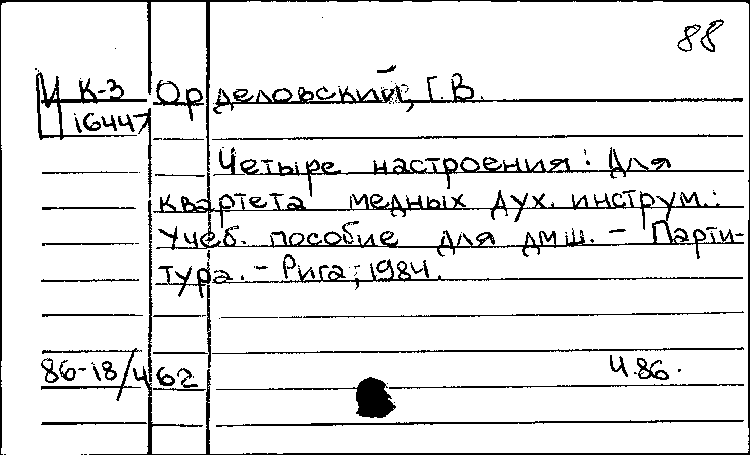 88
И К-3 Орделовский, Г.В.
16447
Четыре настроения: Для
квартета медных дух. инструм.:
Учеб. пособие для дмш. – Парти-
тура. – Рига, 1984.
86-18/462 Ч.86.